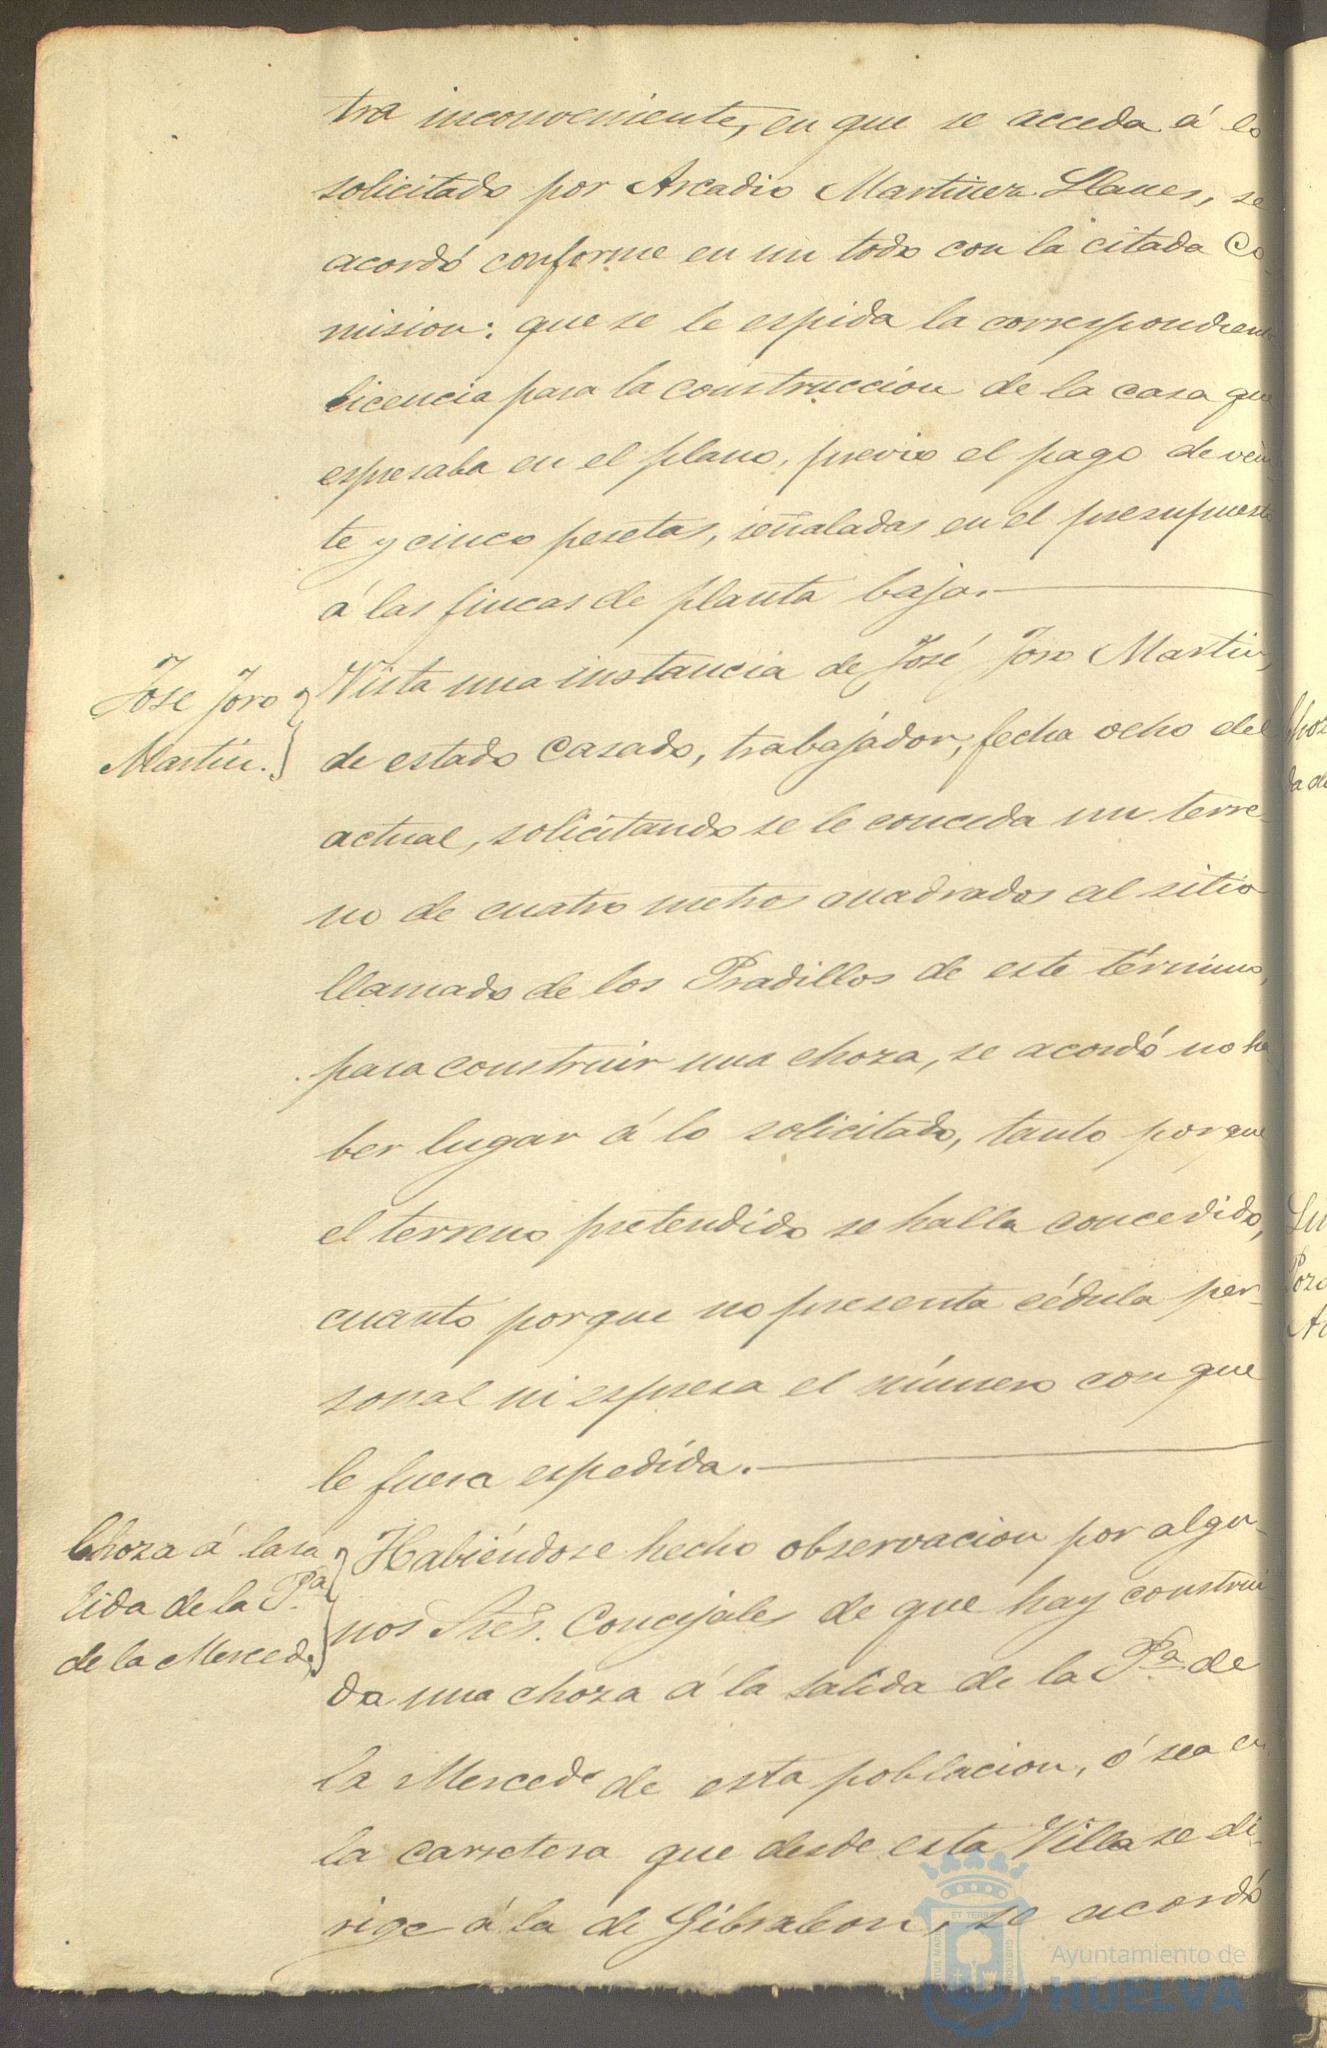 tra inconveniente, en que se acceda á lo
solicitado por Arcadio Martinez Llanes, se
acordó conforme en un todo con la citada Co-
mision: que se le espida la correspondiente
licencia para la construccion de la casa que
espresaba en el plano, previo el pago de vein-
te y cinco pesetas, señaladas en el presupuesto
á las fincas de planta baja.
Jose Toro
Martin.
Vista una instancia de José Toro Martin,
de estado Casado, trabajador, fecha ocho del
actual, solicitando se le conceda un terre-
no de cuatro metros cuadrados al sitio
llamado de los Pradillos de este término,
para construir una choza, se acordó no ha
ber lugar á lo solicitado, tanto porque
el terreno pretendido se halla concedido,
cuanto porque no presenta cédula per-
sonal ni espresa el número con que
le fuera espedida.
Choza á la sa
lida de la Pª
de la Merced.
Habiéndose hecho observacion por algu-
nos Sres. Concejales de que hay construi
da una choza á la salida de la Pª de
la Merced de esta poblacion, ó sea en
la carretera que desde esta Villa se di-
rige á la de Gibraleon, se acordó
Ayuntamiento de
HUELVA